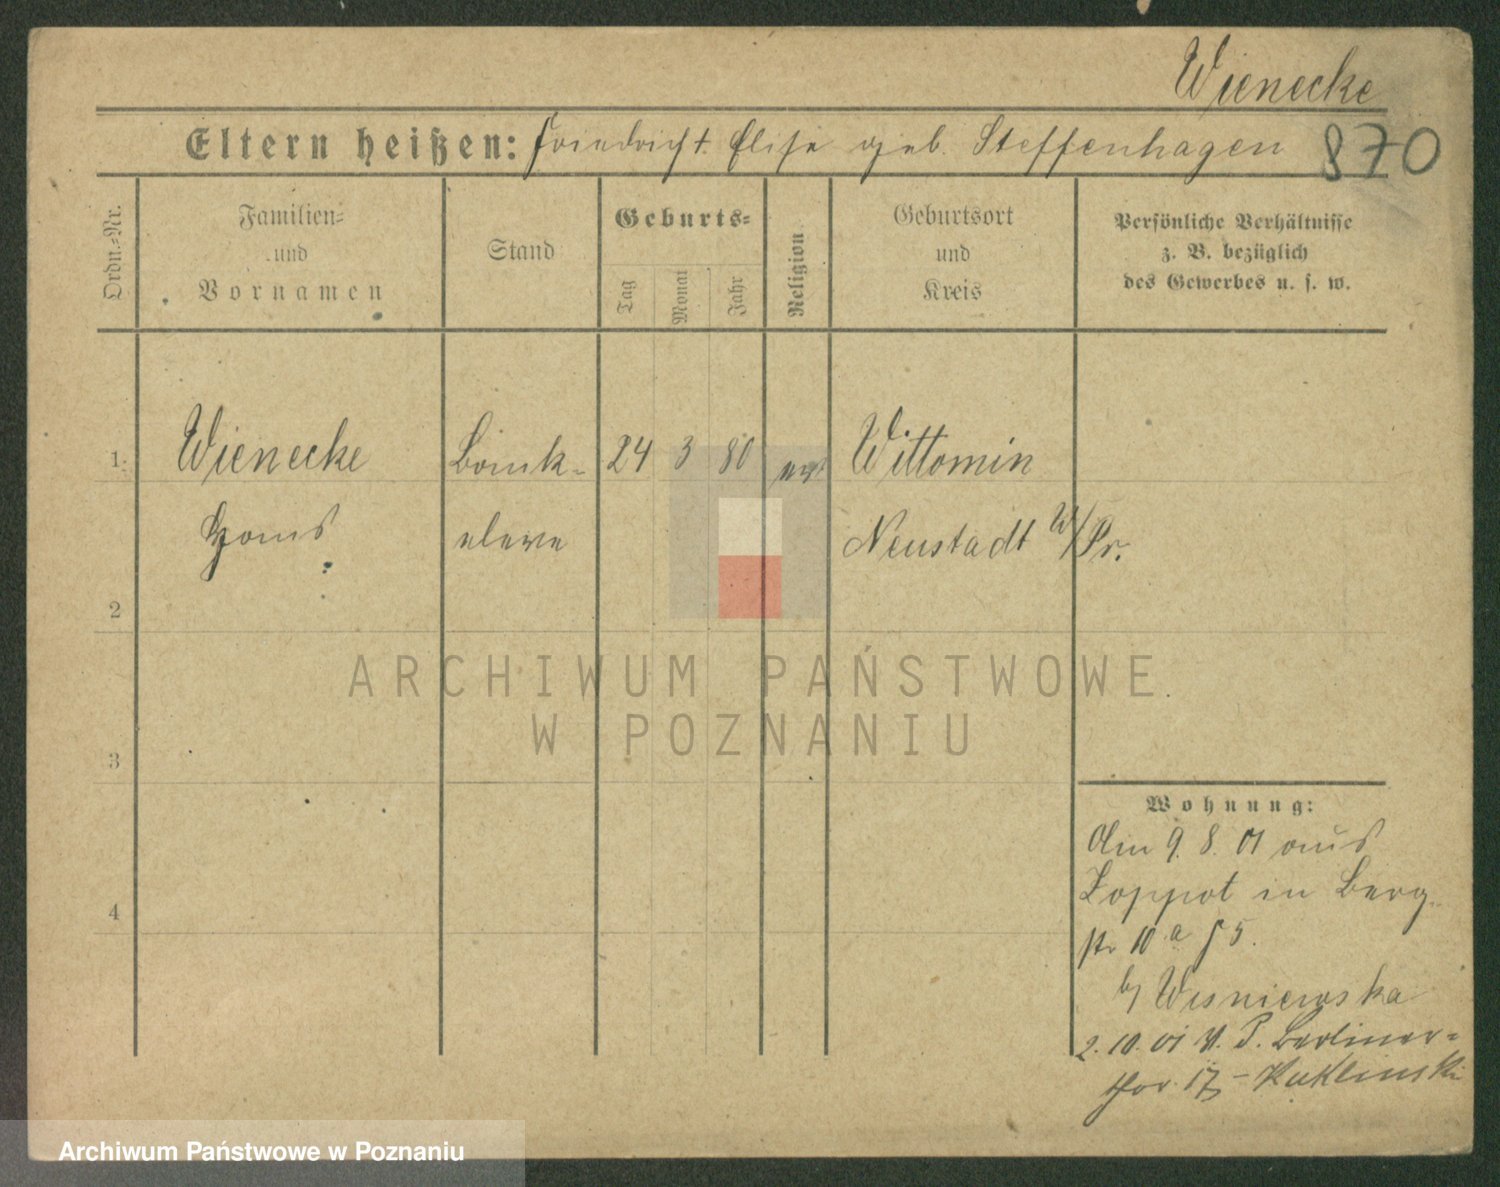 Wienecke
Eltern heißen: Friedrich. Elise geb. Steffenhagen 870
Ordn.-Nr.
Familien-
und
Vornamen
Stand
Geburts-
Tag
Monat
Jahr
Religion
Geburtsort
und
Kreis
Persönliche Verhältnisse
z. B. bezüglich
des Gewerbes u. s. w.
1. Wienecke Bank- 24 3 80 Wittomin
Hans eleve Neustadt W/Pr.
2
ARCHIWUM PAŃSTWOWE
W POZNANIU
3
Wohnung:
Am 9. 8. 01 aus
Zoppot in Berg-
str 10 a
b/ Wisniewska
2. 10. 01 Berliner-
thor 17 – Kuklinski
4
Archiwum Państwowe w Poznaniu